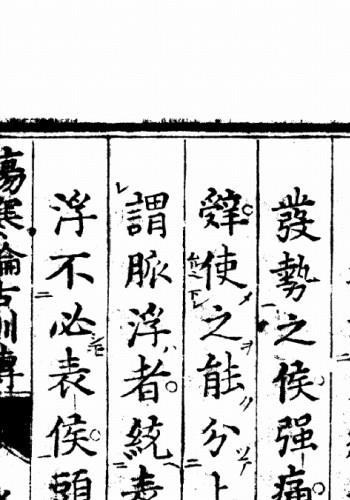 發勢之候强痛
辭使之能分上
謂脈浮者統表
浮不必表候頭
傷寒論古訓傳